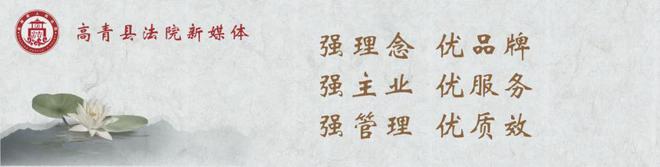 高青县法院新媒体
强理念 优品牌
强主业 优服务
强管理 优质效